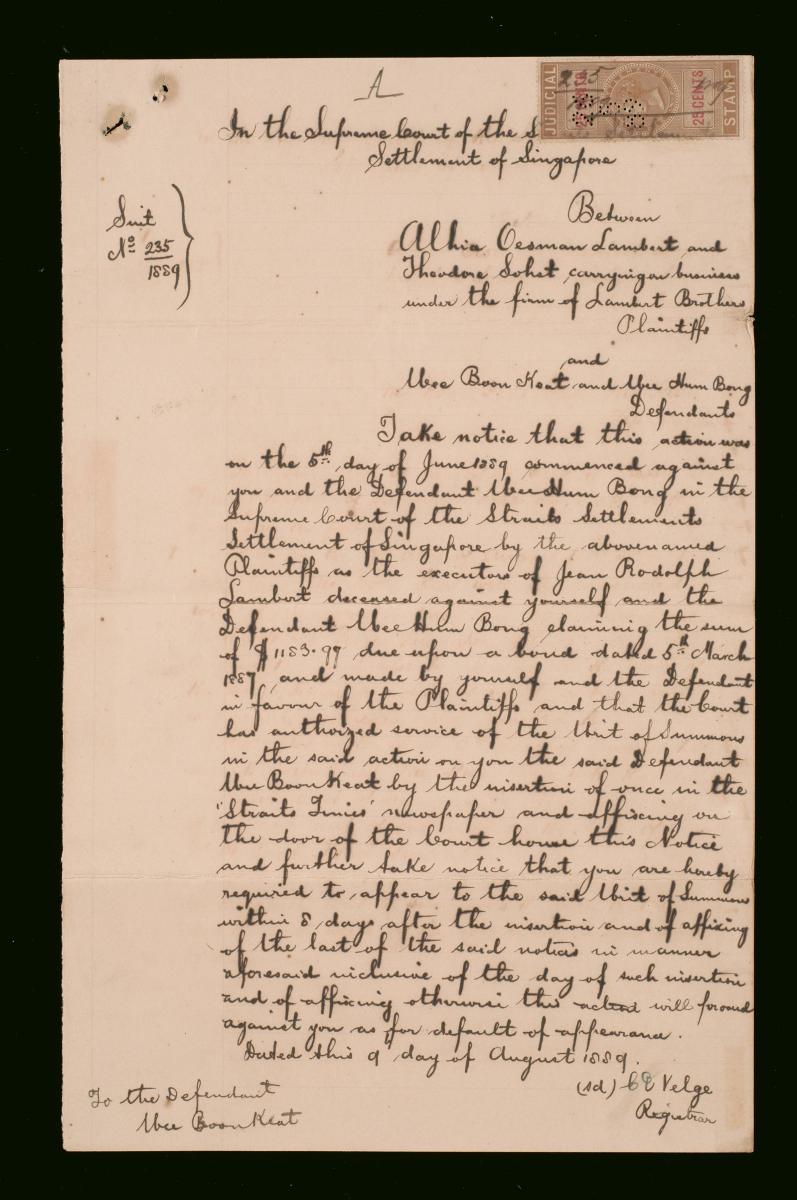 A
JUDICIAL 25 CENTS 25 CENTS STAMP
235
In the Supreme Court of the S
Settlement of Singapore
Suit
No 235
1889
Between
Albia Oesman Lambert and
Theodore Sohst carrying on business
under the firm of Lambert Brothers
Plaintiffs
and
Wee Boon Keat and Wee Hum Bong
Defendants
Take notice that this action was
on the 5th day of June 1889 commenced against
you and the Defendant Wee Hum Bong in the
Supreme Court of the Straits Settlements
Settlement of Singapore by the abovenamed
Plaintiffs as the executors of Jean Rodolph
Lambert deceased against yourself and the
Defendant Wee Hum Bong claiming the sum
of $1183.99 due upon a bond dated 5th March
1887, and made by yourself and the Defendant
in favour of the Plaintiffs and that the Court
has authorized service of the Writ of Summons
in the said action on you the said Defendant
Wee Boon Keat by the insertion of once in the
'Straits Times' newspaper and affixing on
the door of the Court house this Notice
and further take notice that you are hereby
required to appear to the said Writ of Summons
within 8 days after the insertion and of affixing
of the last of the said notices in manner
aforesaid inclusive of the day of such insertion
and of affixing otherwise this action will proceed
against you as for default of appearance.
Dated this 9 day of August 1889.
(sd) Velge
Registrar
To the Defendant
Wee Boon Keat